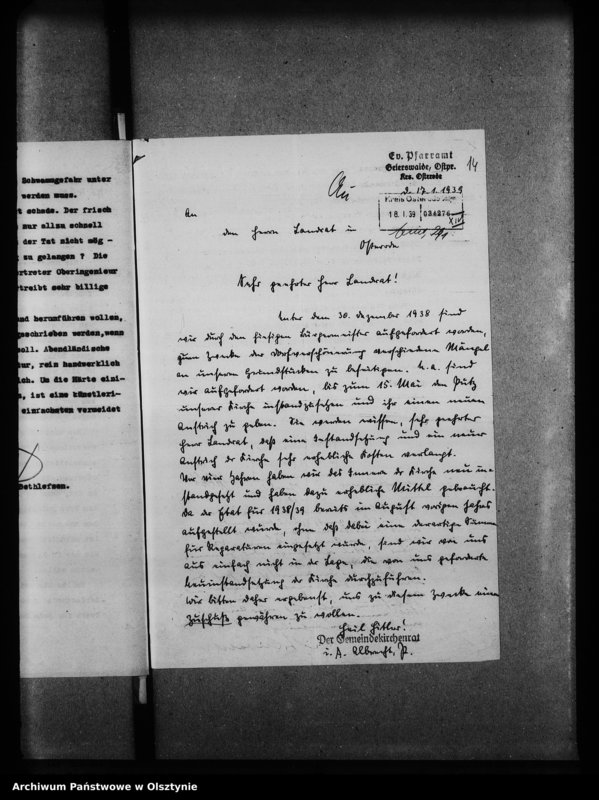 Schwammgefahr unter
werden muss.
t schade. Der frisch
nur allzu schnell
der Tat nicht mög -
zu gelangen ? Die
rtreter Oberingenieur
rtreibt sehr billige
und herumführen wollen,
geschrieben werden,wenn
soll. Abendländische
tur, rein handwerklich
ich. Um die Härte eini-
n, ist eine künstleri-
einrachsten vermeidet
Bethlefsen.
Ev. Pfarramt
Geierswalde, Ostpr.
Krs. Osterode
14
d. 17.1.1939
Kreis Osterode Ostpr.
18.1.39 034276
An
den Herrn Landrat in
Osterode
Sehr geehrter Herr Landrat!
Unter dem 30. Dezember 1938 sind
wir durch den hiesigen Bürgermeister aufgefordert worden,
zum Zwecke der Dorfverschönerung verschiedene Mängel
an unseren Grundstücken zu beseitigen. U. a. sind
wir aufgefordert worden, bis zum 15. Mai den Putz
unserer Kirche instandzusetzen und ihr einen neuen
Anstrich zu geben. Sie werden wissen, sehr geehrter
Herr Landrat, daß eine Instandsetzung und ein neuer
Anstrich der Kirche sehr erhebliche Kosten verlangt.
Vor vier Jahren haben wir das Innere der Kirche neu in-
standgesetzt und haben dazu erhebliche Mittel gebraucht.
Da der Etat für 1938/39 bereits im August vorigen Jahres
aufgestellt wurde, ohne daß dabei eine derartige Summe
für Reparaturen eingesetzt wurde, sind wir von uns
aus einfach nicht in der Lage, die von uns geforderte
Neuinstandsetzung der Kirche durchzuführen.
Wir bitten daher ergebenst, uns zu diesem Zwecke einen
Zuschuß gewähren zu wollen.
Heil Hitler!
Der Gemeindekirchenrat
i. A. Albrecht, P.
Archiwum Państwowe w Olsztynie